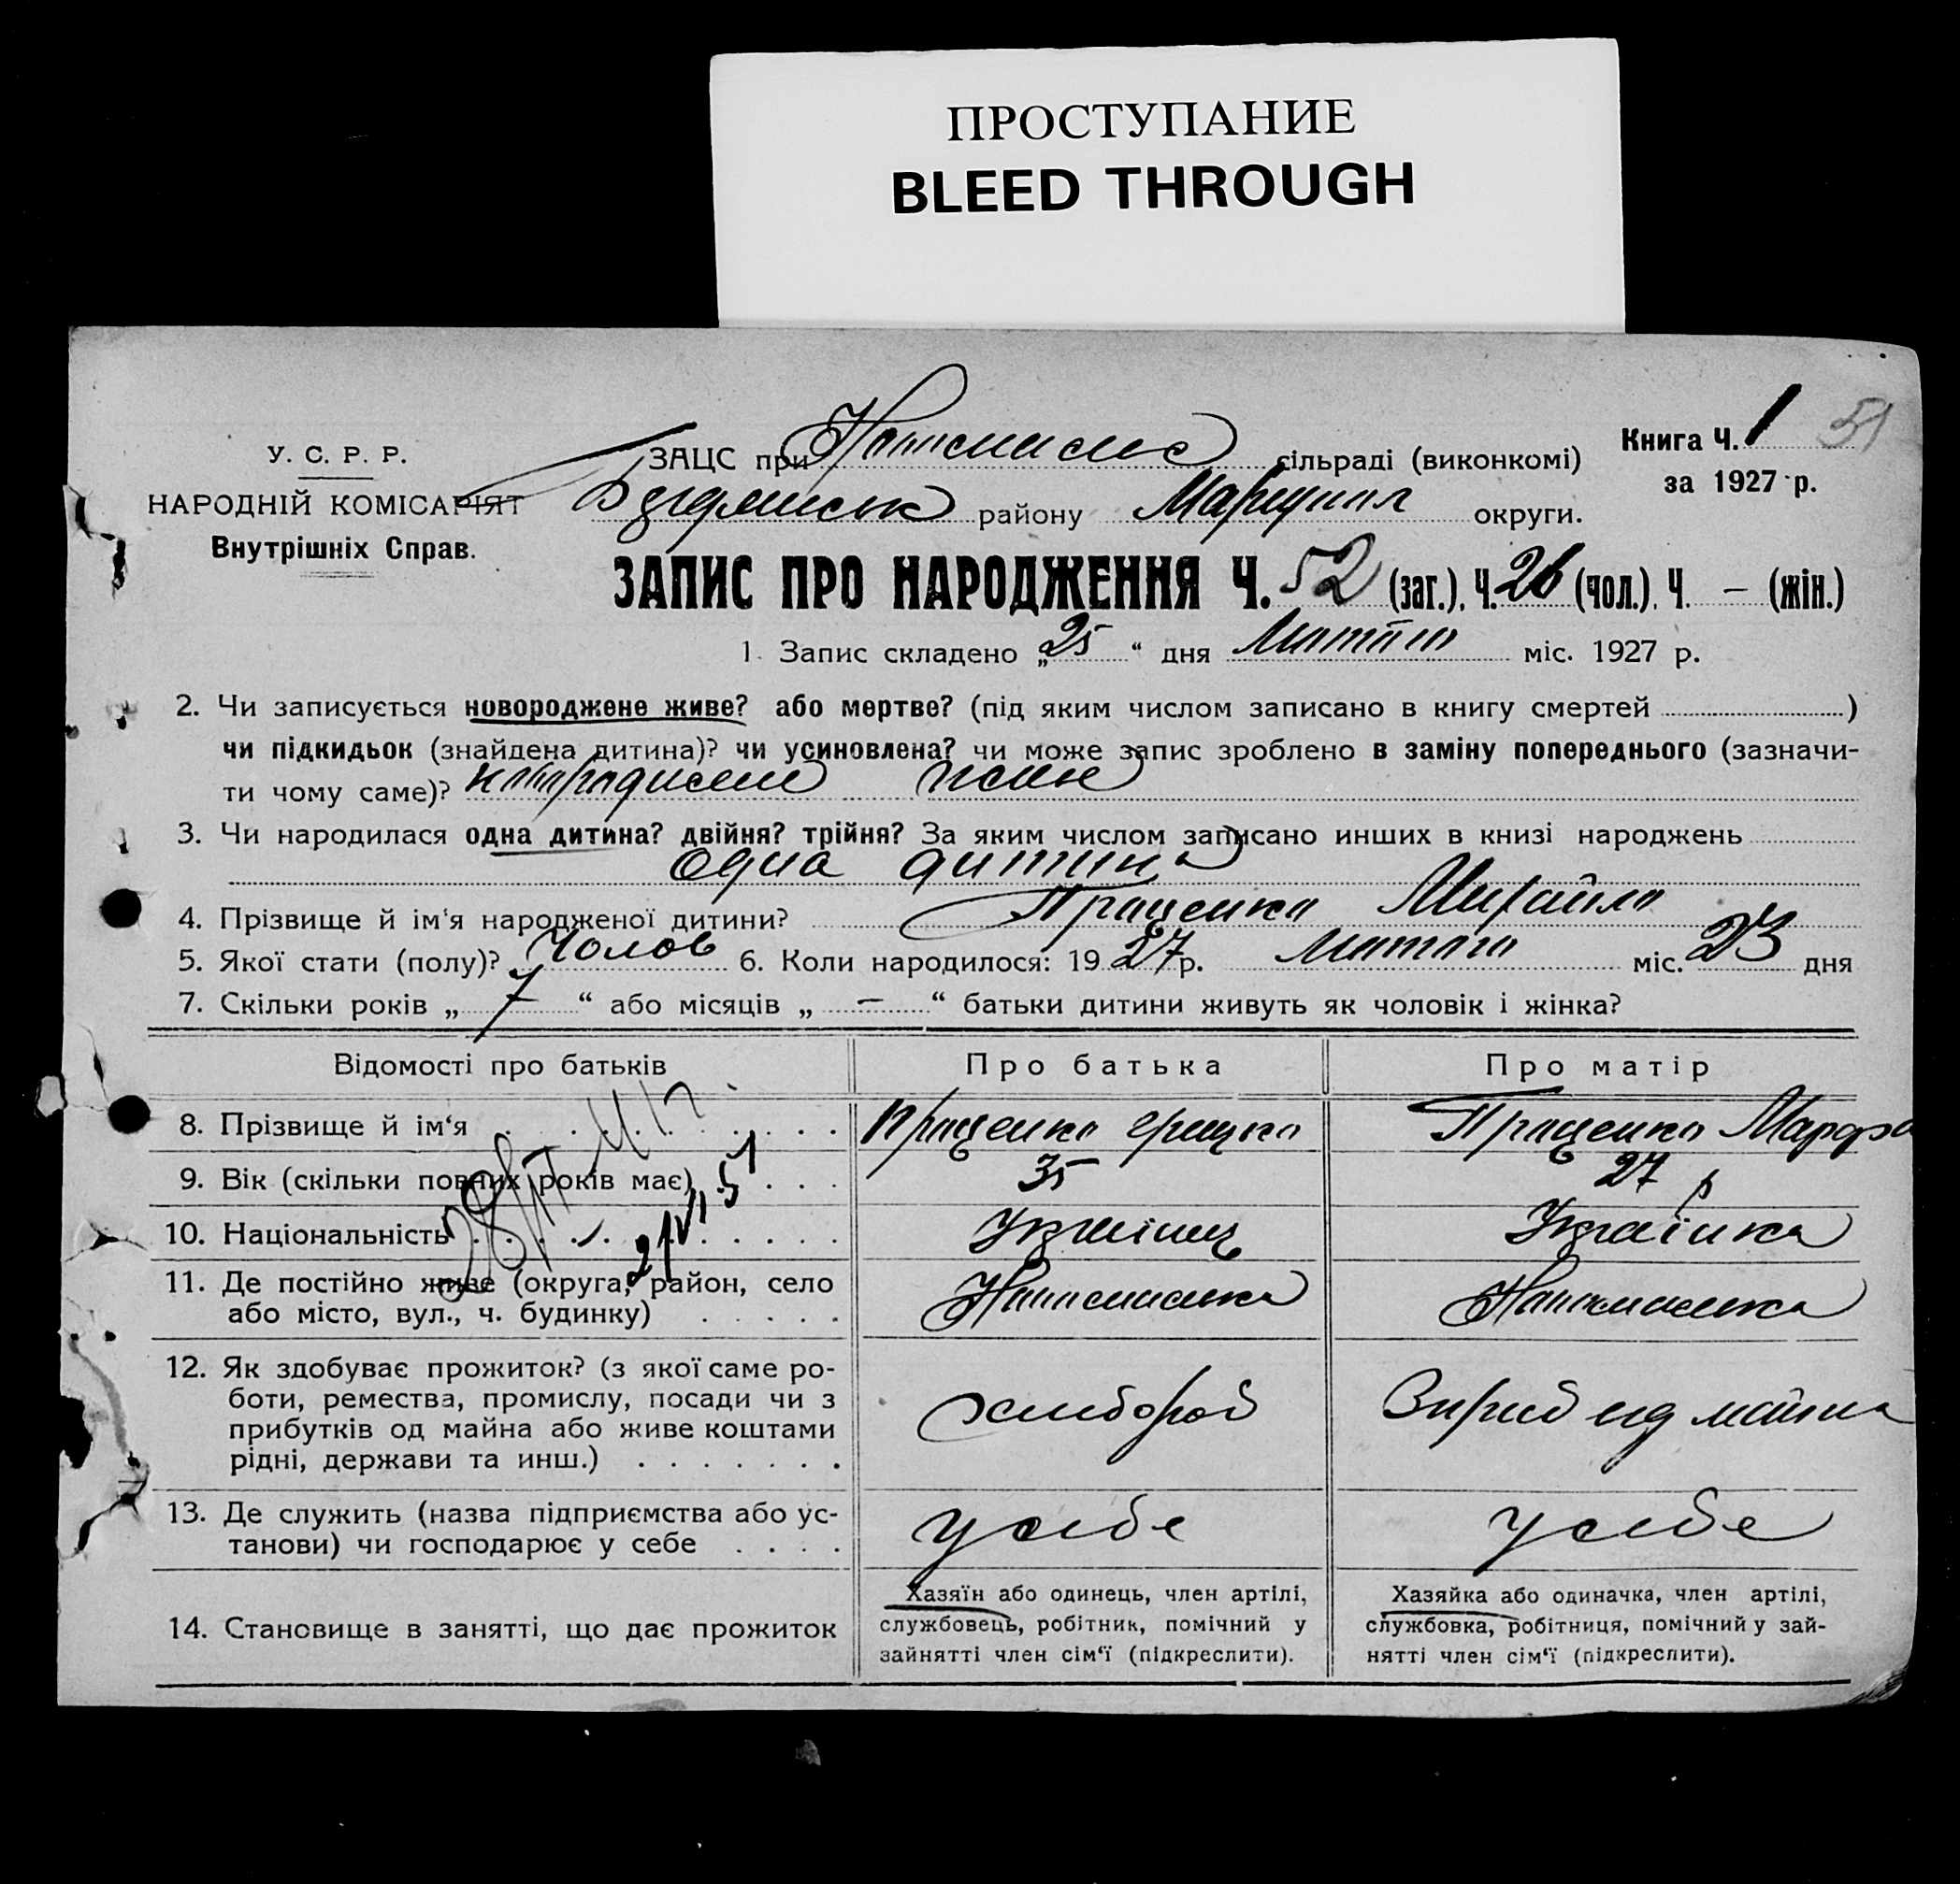 ПРОСТУПАНИЕ
BLEED THROUGH
У. С. Р. Р.
НАРОДНІЙ КОМІСАРІЯТ
Внутрішніх Справ.
ЗАЦС при сільраді (виконкомі)
району Маріупил округи.
Книга Ч. 1 51
за 1927 р.
ЗАПИС ПРО НАРОДЖЕННЯ Ч. 52 (заг.), Ч. 26 (чол.), Ч. — (жін.)
1. Запис складено „25“ дня Лютого міс. 1927 р.
2. Чи записується новороджене живе? або мертве? (під яким числом записано в книгу смертей )
чи підкидьок (знайдена дитина)? чи усиновлена? чи може запис зроблено в заміну попереднього (зазначи-
ти чому саме)?
3. Чи народилася одна дитина? двійня? трійня? За яким числом записано инших в книзі народжень
одна дитина
4. Прізвище й ім'я народженої дитини? Проценко Михайло
5. Якої стати (полу)? Чолов 6. Коли народилося: 1927 р. Лютого міс. 23 дня
7. Скільки років „7“ або місяців „—“ батьки дитини живуть як чоловік і жінка?
Відомості про батьків Про батька Про матір
8. Прізвище й ім'я Проценко Грицко Проценко Марфа
9. Вік (скільки повних років має) 35 27 р
10. Національність Українц Українка
11. Де постійно живе (округа, район, село
або місто, вул., ч. будинку)
12. Як здобуває прожиток? (з якої саме ро-
боти, ремества, промислу, посади чи з
прибутків од майна або живе коштами
рідні, держави та инш.)
хлибороб
13. Де служить (назва підприємства або ус-
танови) чи господарює у себе
у себе у себе
14. Становище в занятті, що дає прожиток
Хазяїн або одинець, член артілі,
службовець, робітник, помічний у
зайнятті член сім'ї (підкреслити).
Хазяйка або одиначка, член артілі,
службовка, робітниця, помічний у зай-
нятті член сім'ї (підкреслити).